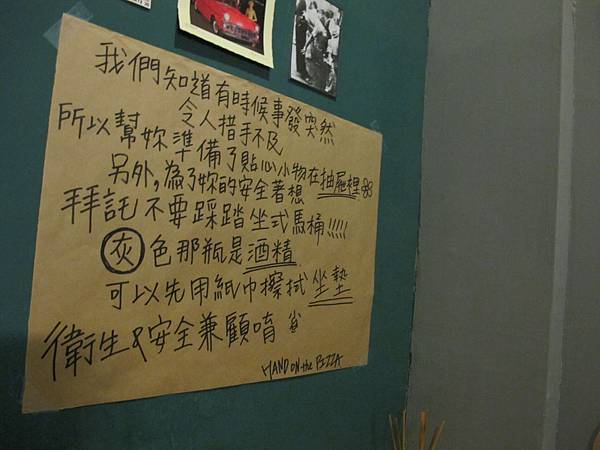 我們知道有時候事發突然
令人措手不及
所以幫妳準備了貼心小物在抽屜裡
另外,為了妳的安全著想
拜託不要踩踏坐式馬桶!!!!!
灰色那瓶是酒精
可以先用紙巾擦拭坐墊
衛生&安全兼顧唷
HAND ON the PIZZA